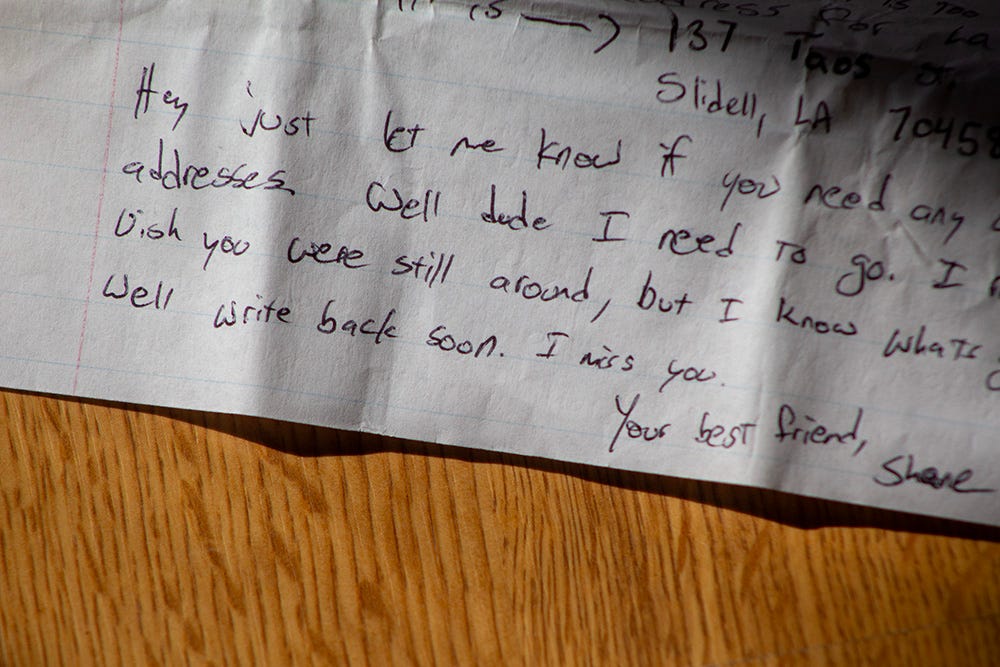 is → 137 Taos St,
Slidell, LA 70458
Hey just let me know if you need any
addresses. Well dude I need to go. I
wish you were still around, but I know whats
Well write back soon. I miss you.
Your best friend,
Shane